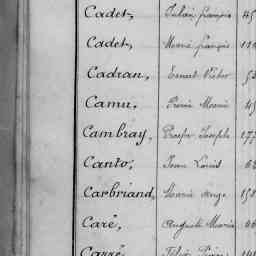 Cadet, Julien françois 45
Cadet, Marie françois 111
Cadran, Ernest Victor
Camu, Pierre Marie
Cambray, Prosper Joseph 177
Canto, Jean Louis
Carbriand, Marie Ange 158
Caré, Auguste Marie 66
Carré,